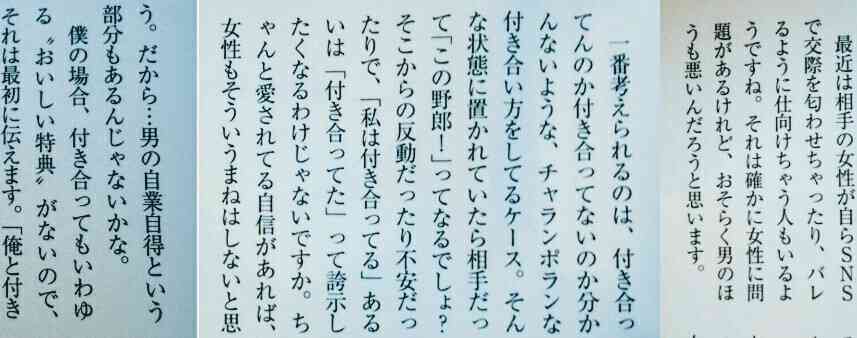 最近は相手の女性が自らSNS
で交際を匂わせちゃったり、バレ
るように仕向けちゃう人もいるよ
うですね。それは確かに女性に問
題があるけれど、おそらく男のほ
うも悪いんだろうと思います。
一番考えられるのは、付き合っ
てんのか付き合ってないのか分か
んないような、チャランポランな
付き合い方をしてるケース。そん
な状態に置かれていたら相手だっ
て「この野郎！」ってなるでしょ？
そこからの反動だったり不安だっ
たりで、「私は付き合ってる」ある
いは「付き合ってた」って誇示し
たくなるわけじゃないですか。ち
ゃんと愛されてる自信があれば、
女性もそういうまねはしないと思
う。だから…男の自業自得という
部分もあるんじゃないかな。
僕の場合、付き合ってもいわゆ
る〝おいしい特典〟がないので、
それは最初に伝えます。「俺と付き